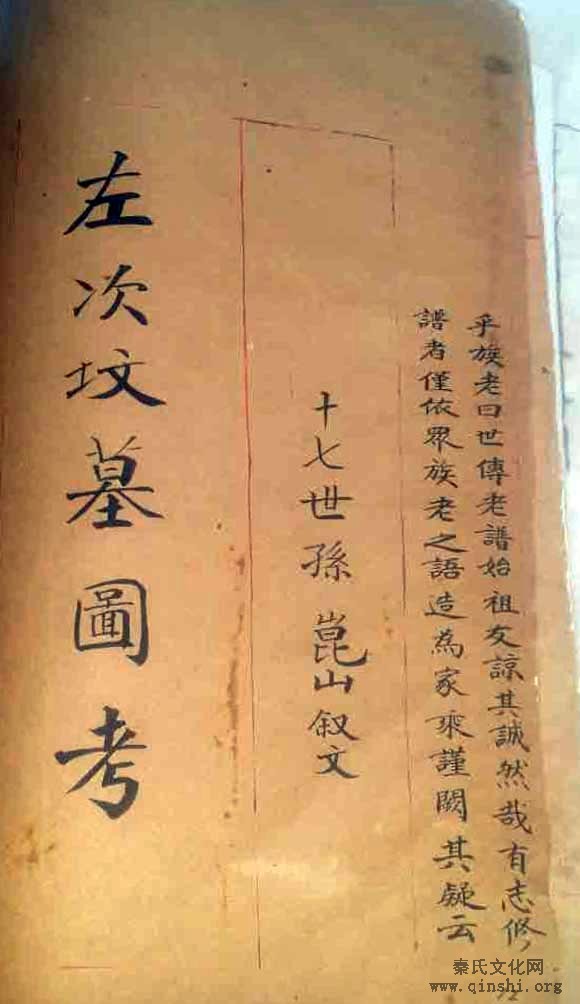 乎族老曰世傳老譜始祖友諒其誠然哉有志修
譜者僅依眾族老之語造為家乘謹闕其疑云
十七世孫崑山叙文
左次坟墓圖考
秦氏文化网
www.qinshi.org